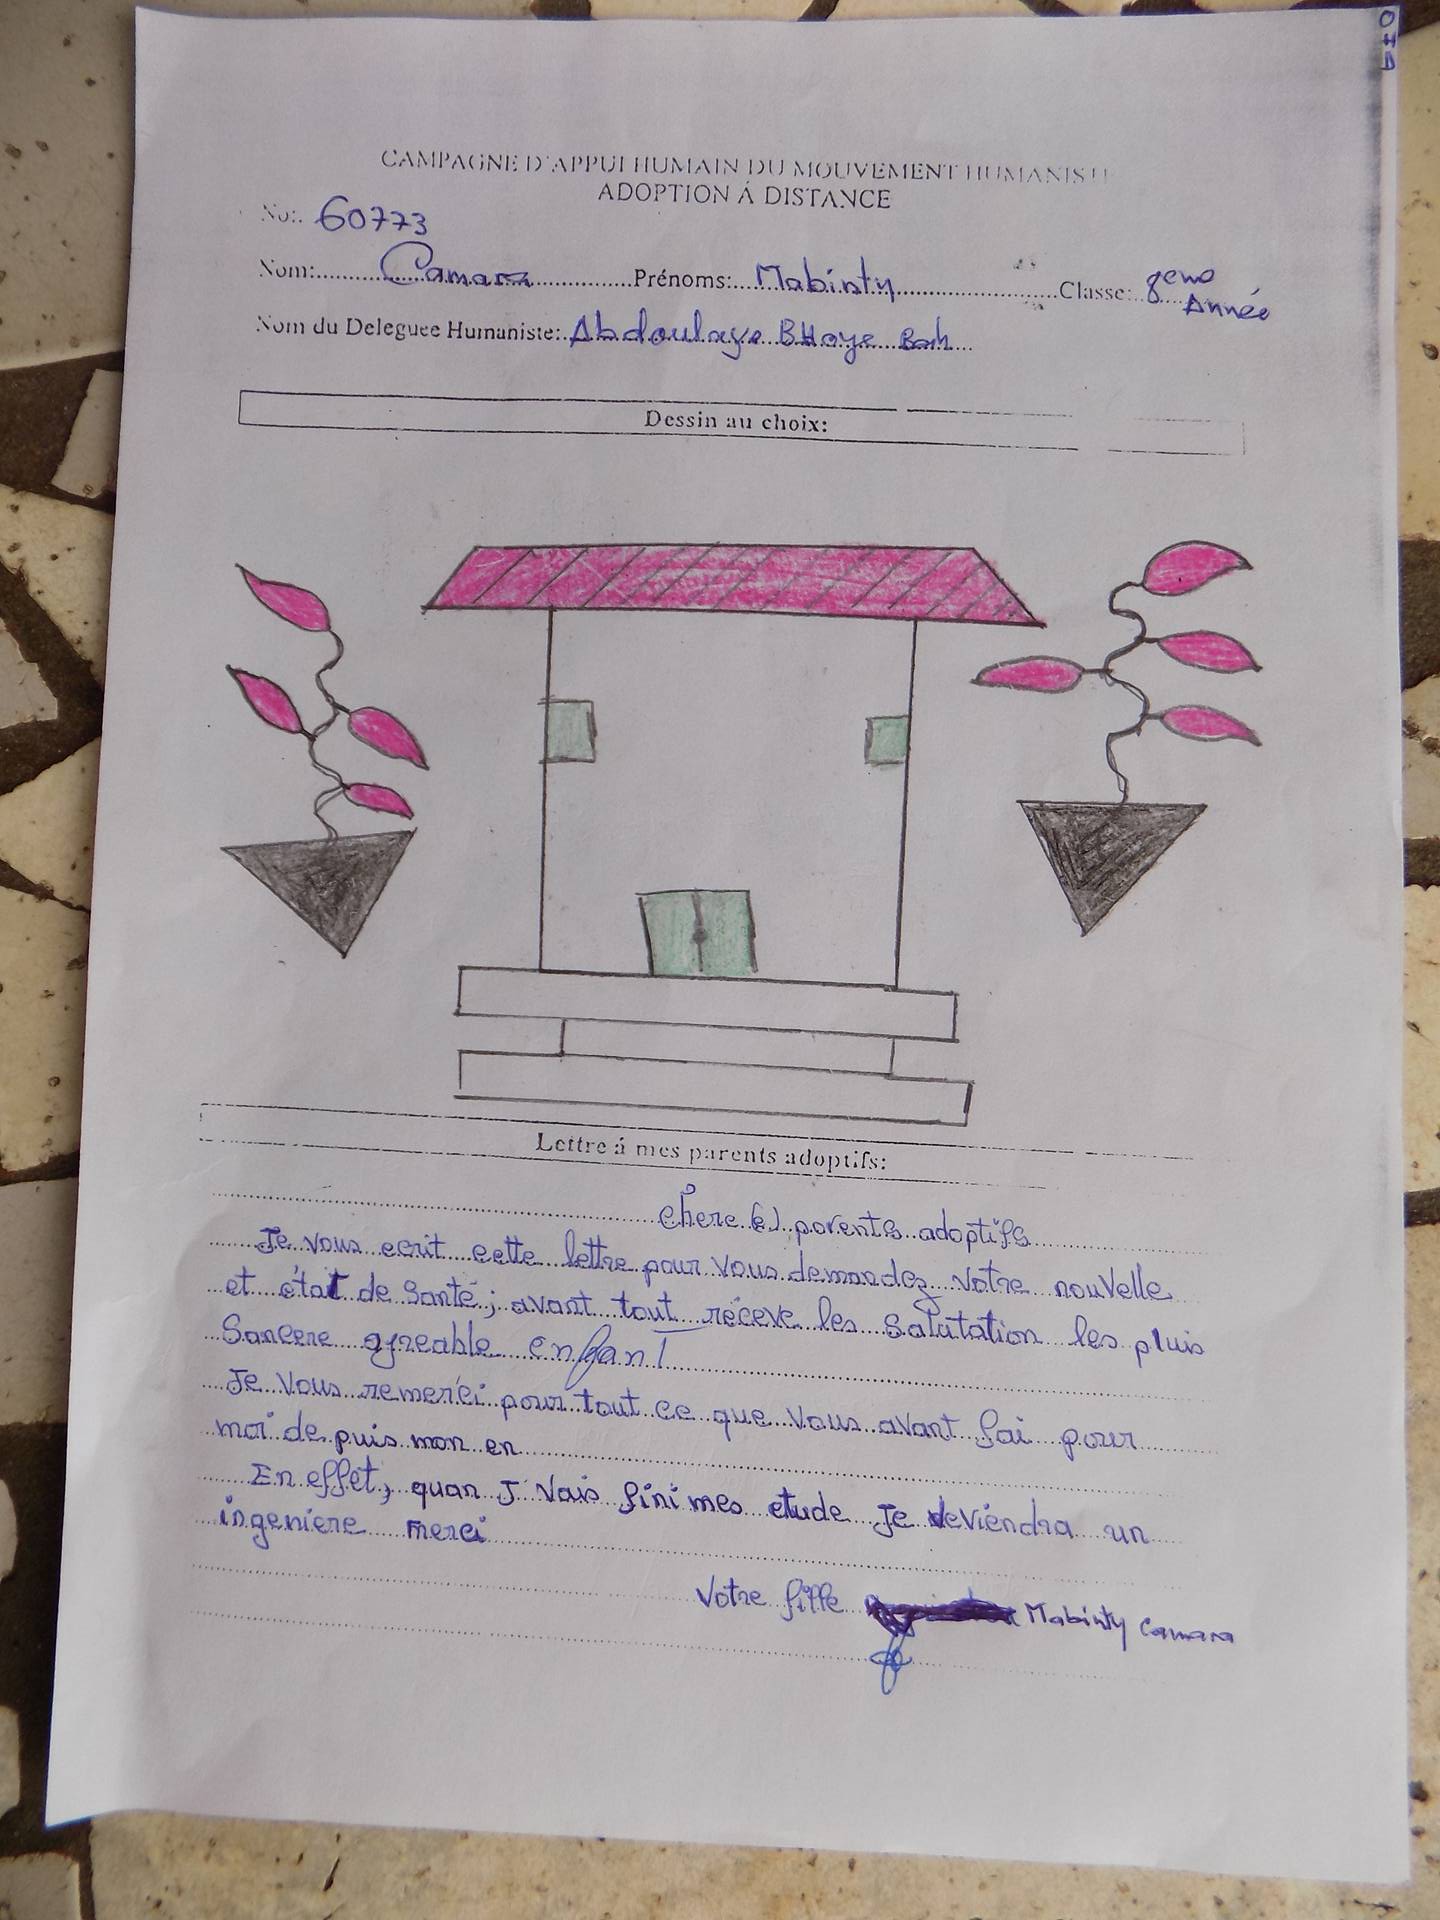 CAMPAGNE D'APPUI HUMAIN DU MOUVEMENT HUMANISTE
ADOPTION Á DISTANCE
No: 60773
Nom: Camara Prénoms: Mabinty Classe: 8eme Année
Nom du Deleguee Humaniste: Abdoulaye Bhoye Bah
Dessin au choix:
Lettre á mes parents adoptifs:
chere (s) parents adoptifs
Je vous ecrit cette lettre pour vous demandez votre nouvelle
et état de Santé; avant tout réceve les salutation les pluis
Sancere agreable enfant
Je vous remerci pour tout ce que vous avant fai pour
moi de puis mon en
En effet, quan J vais fini mes etude Je deviendra un
ingeniere merci
Votre fille Mabinty Camara